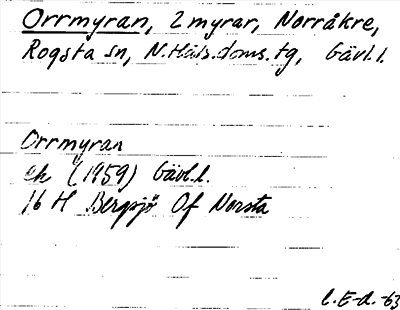 Orrmyran, 2 myrar, Norråkre,
Rogsta sn, N.Häls.doms.tg, Gävl.l.
Orrmyran
ek (1959) Gävl.l.
16 H Bergsjö Of Norsta
L.E-d.-63